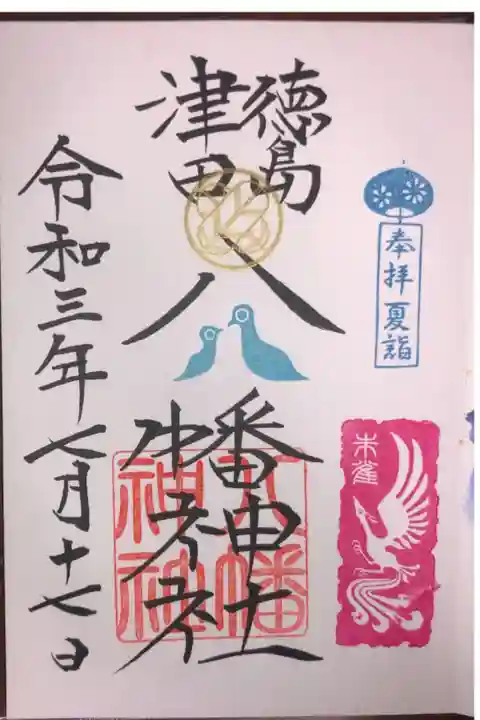 奉拝 夏詣
朱雀
徳島
津田
八幡神社
八幡神社
令和三年七月十七日